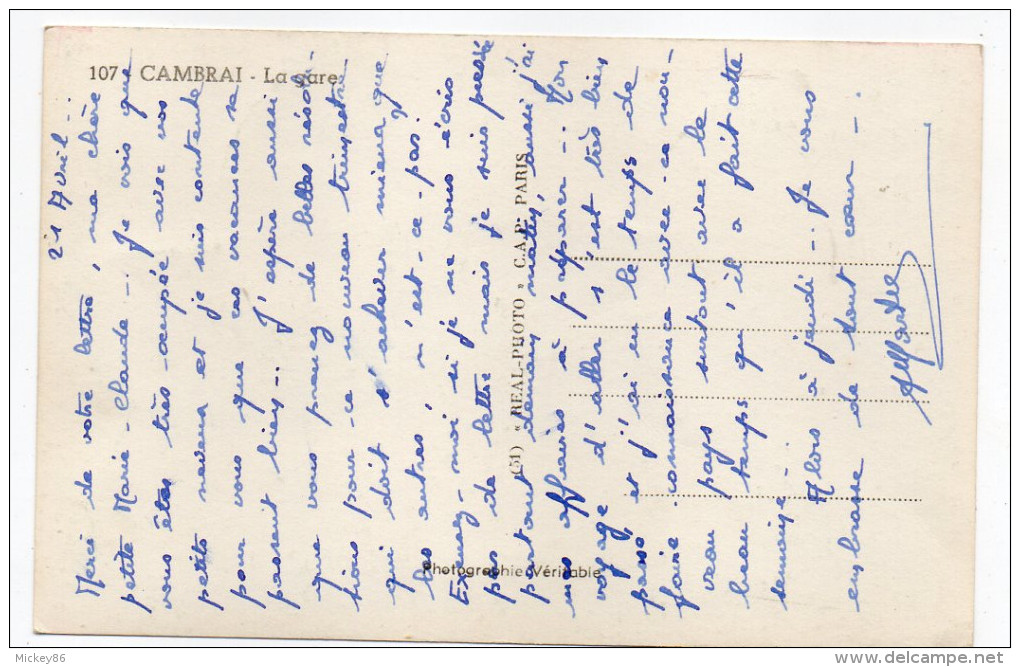 107 - CAMBRAI - La Gare
21 Avril -
Merci de votre lettre, ma chère
petite Marie-Claude -. Je vois que
vous êtes très occupée avec vos
petits neveux et je suis contente
pour vous que ces vacances se
passent bien -. J'espère aussi
que vous prenez de belles résolu-
tions pour ce nouveau trimestre
qui doit s'achever mieux que
les autres, n'est-ce-pas.
Excusez-moi si je ne vous écris
pas de lettre mais je suis pressée
partant demain matin, aussi j'ai
mes affaires à préparer -. Mon
voyage d'aller s'est très bien
passé et j'ai eu le temps de
faire connaissance avec ce nou-
veau pays surtout avec le
beau temps qu'il a fait cette
semaine -. Alors à jeudi -. Je vous
embrasse de tout coeur -.
(51) « REAL-PHOTO » C.A.P. PARIS
Photographie Véritable
Mickey86
www.delcampe.net